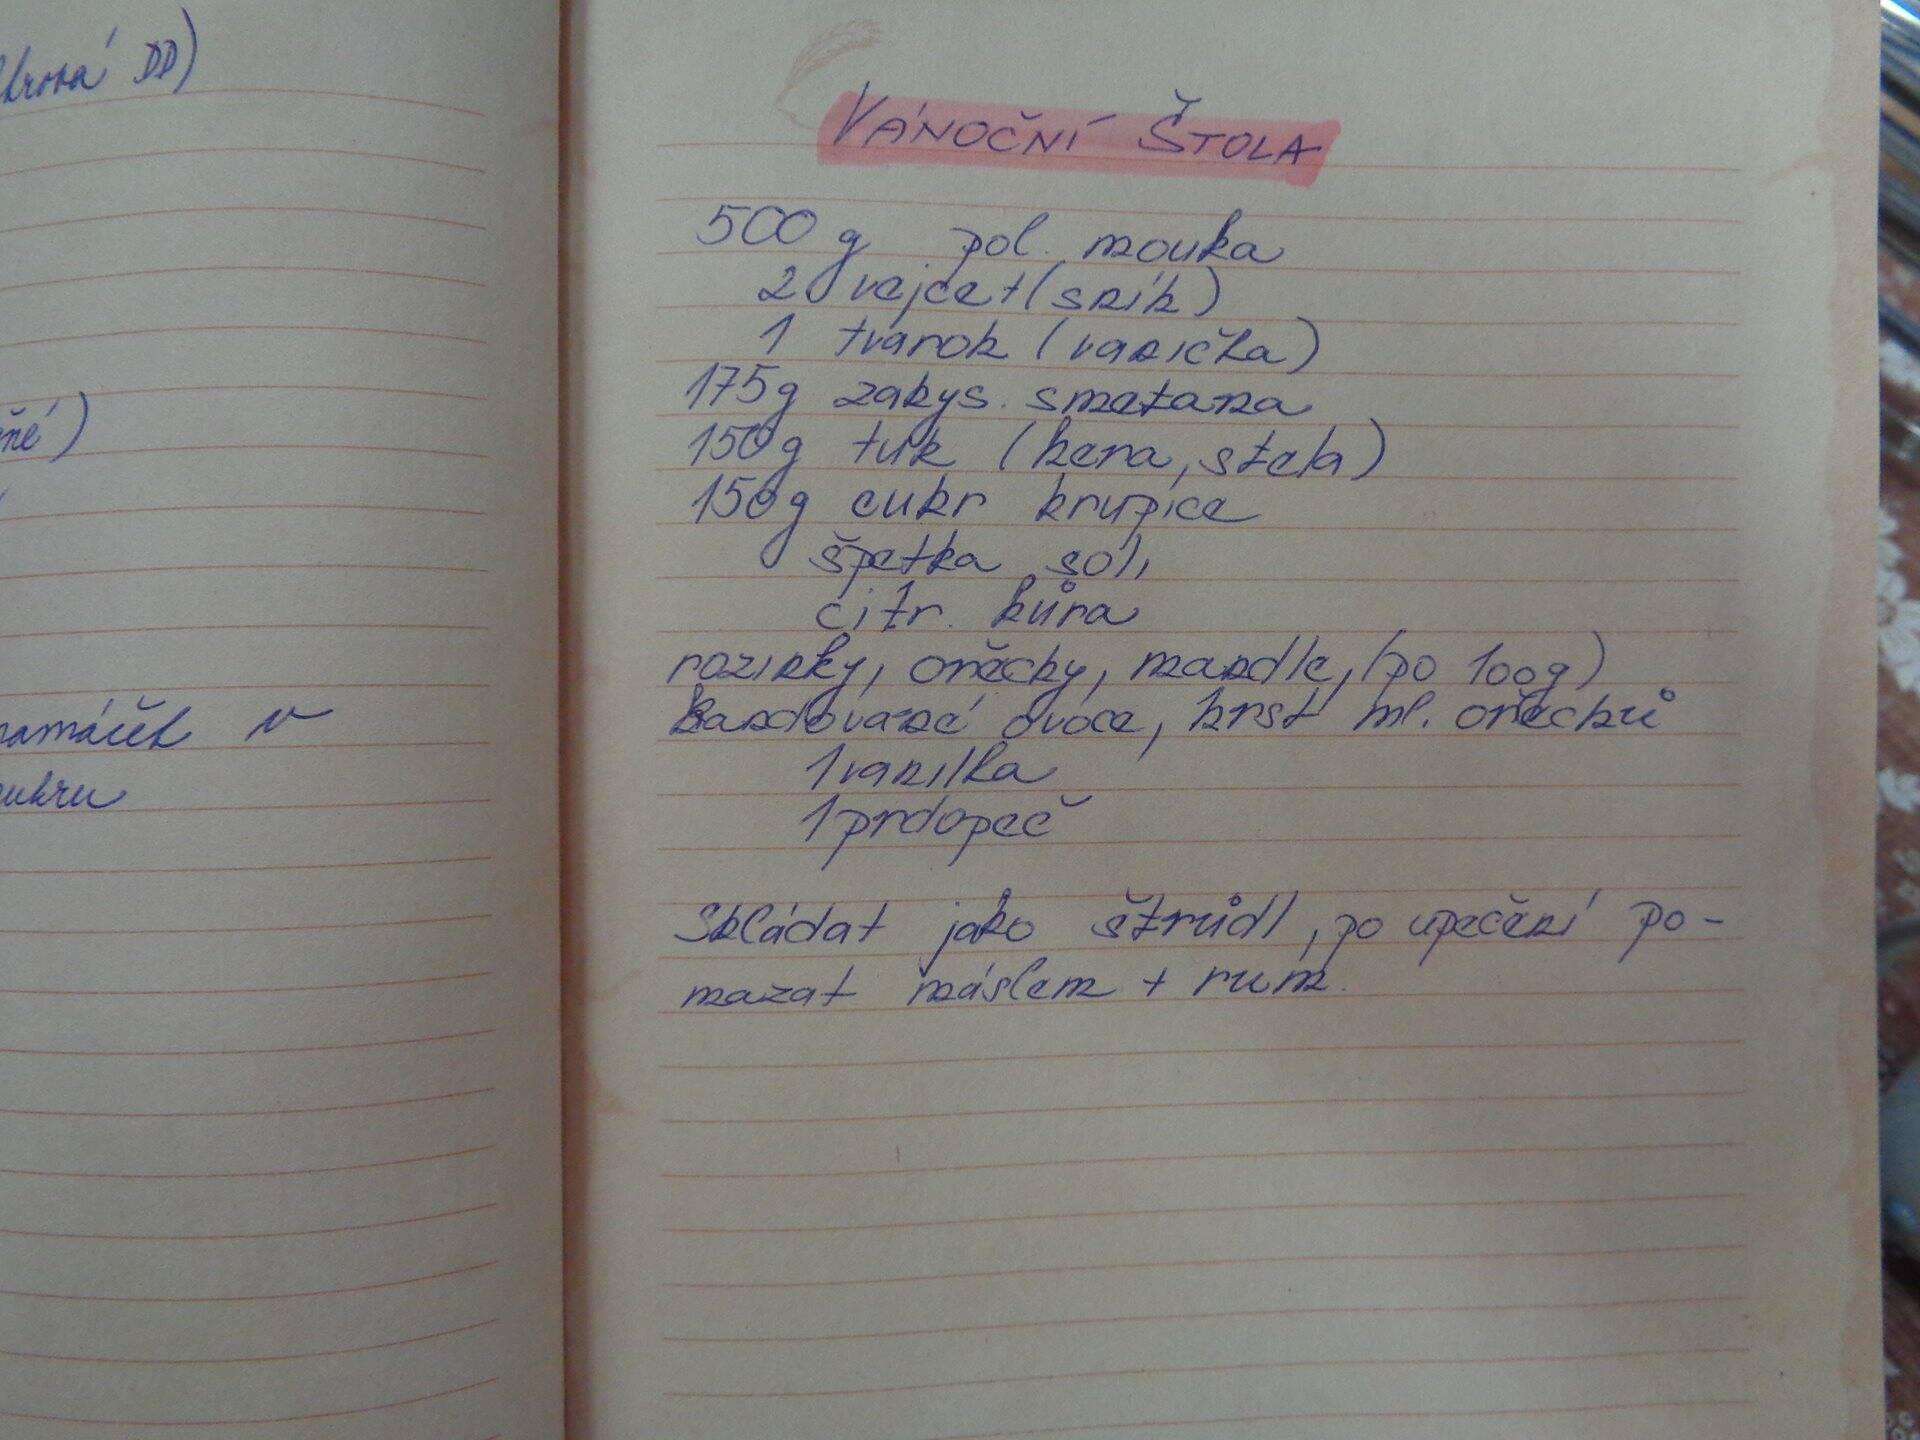 DD)
VÁNOČNÍ ŠTOLA
500 g pol. mouka
2 vejce + (sníh)
1 tvaroh (vanička)
175g zakys. smetana
150g tuk (hera, stela)
150g cukr krupice
špetka soli
citr. kůra
rozinky, oříšky, mandle, (po 100g)
kandované ovoce, hrst ml. ořechů
1 vanilka
1 prdopeč
Skládat jako štrůdl, po upečení po-
mazat máslem + rum.